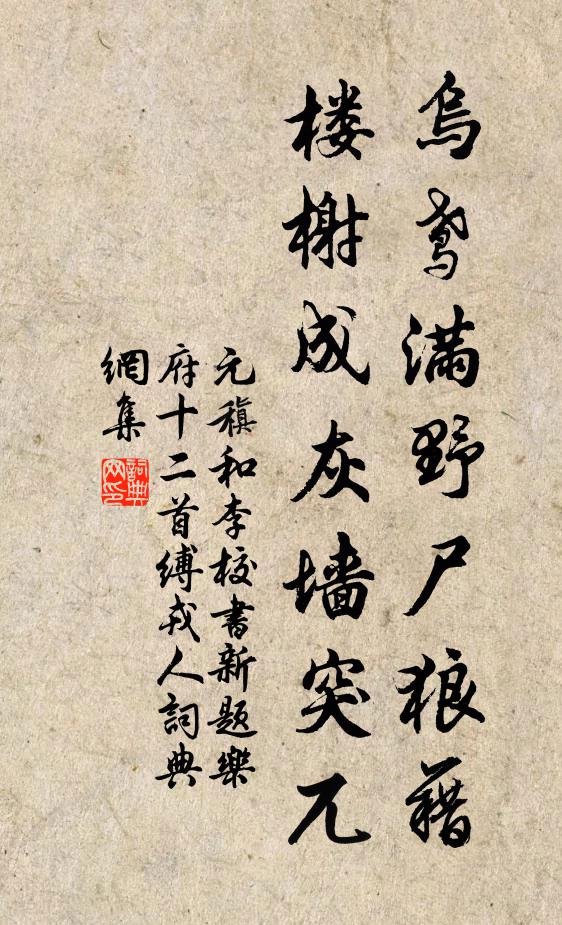 乌鸢满野尸狼藉
楼榭成灰墙突兀
元稹和李校書新题樂
府十二首縛戎人詞典
網集
詞典
网印